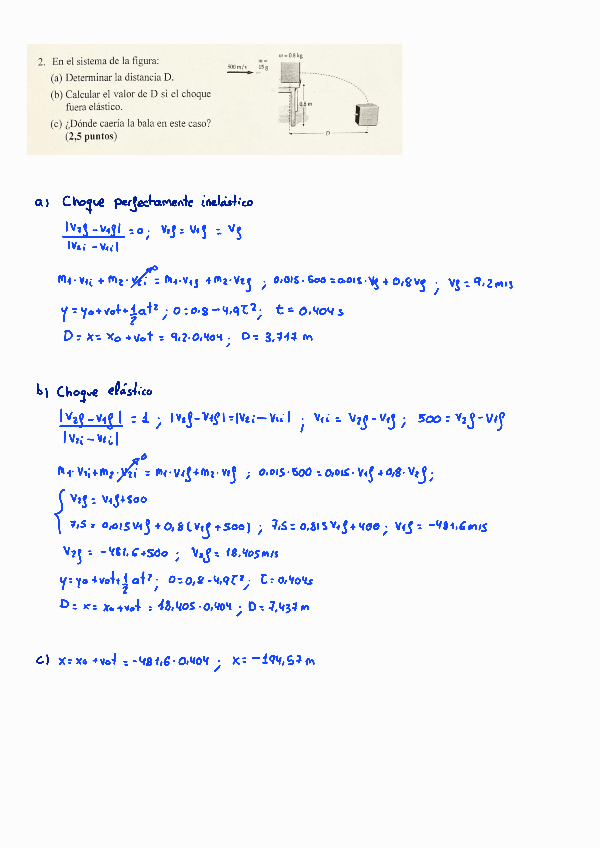 2. En el sistema de la figura:
(a) Determinar la distancia D.
(b) Calcular el valor de D si el choque
fuera elástico.
(c) ¿Dónde caería la bala en este caso?
(2,5 puntos)
500 m/s
m =
15 g
m = 0.8 kg
0.8 m
D
a) Choque perfectamente inelástico
|V2f - V1f| / |V2i - V1i| = 0; V2f = V1f = Vf
m1·V1i + m2·V2i = m1·V1f + m2·V2f ; 0,015·500 = 0,015·Vf + 0,8Vf ; Vf = 9,2 m/s
0
y = y0 + v0t + 1/2 at² ; 0 = 0,8 - 4,9t² ; t = 0,404 s
D = x = x0 + v0t = 9,2·0,404 ; D = 3,717 m
b) Choque elástico
|V2f - V1f| / |V2i - V1i| = 1 ; |V2f - V1f| = |V2i - V1i| ; V1i = V2f - V1f ; 500 = V2f - V1f
m1·V1i + m2·V2i = m1·V1f + m2·V2f ; 0,015·500 = 0,015·V1f + 0,8·V2f ;
0
V2f = V1f + 500
7,5 = 0,015V1f + 0,8(V1f + 500) ; 7,5 = 0,815V1f + 400 ; V1f = -481,6 m/s
V2f = -481,6 + 500 ; V2f = 18,405 m/s
y = y0 + v0t + 1/2 at² ; 0 = 0,8 - 4,9t² ; t = 0,404s
D = x = x0 + v0t = 18,405·0,404 ; D = 7,437 m
c) x = x0 + v0t = -481,6·0,404 ; x = -194,57 m